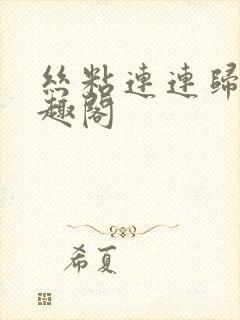 絲粘連連歸
趣閣
希夏